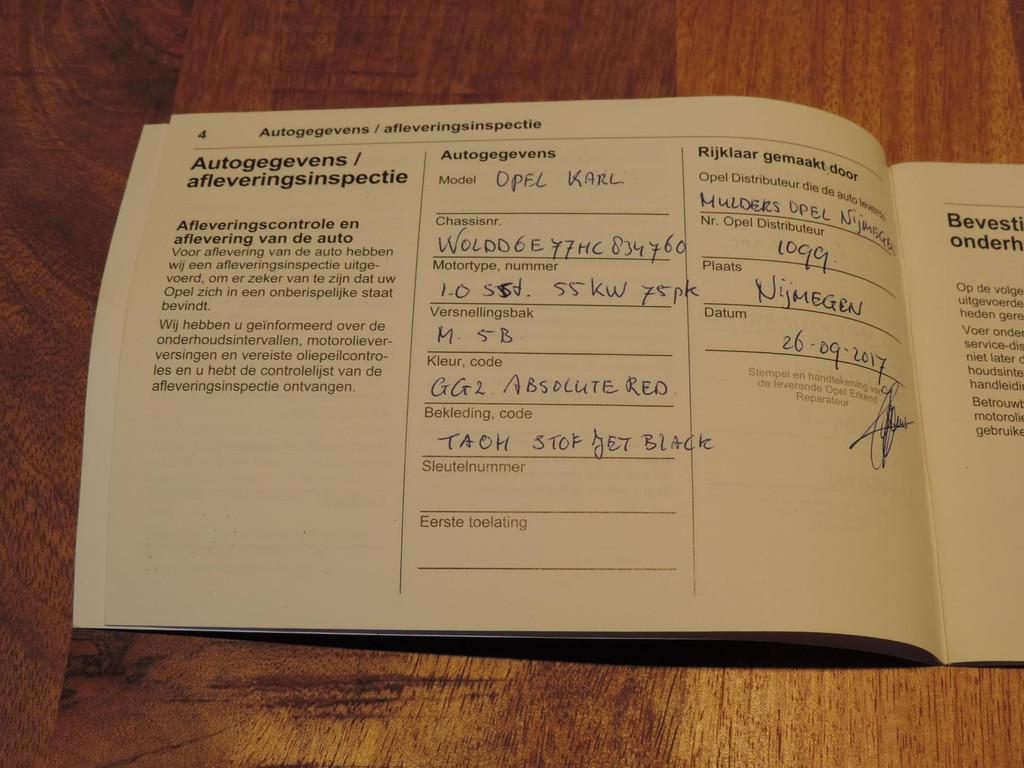 4 Autogegevens / afleveringsinspectie
Autogegevens /
afleveringsinspectie
Afleveringscontrole en
aflevering van de auto
Voor aflevering van de auto hebben
wij een afleveringsinspectie uitge-
voerd, om er zeker van te zijn dat uw
Opel zich in een onberispelijke staat
bevindt.
Wij hebben u geïnformeerd over de
onderhoudsintervallen, motoroliever-
versingen en vereiste oliepeilcontro-
les en u hebt de controlelijst van de
afleveringsinspectie ontvangen.
Autogegevens
Model OPEL KARL
Chassisnr.
WOLDD6E77HC834760
Motortype, nummer
1.0 SSt. 55 KW 75 pk
Versnellingsbak
M. 5B
Kleur, code
GG2. ABSOLUTE RED.
Bekleding, code
TAOH STOF JET BLACK
Sleutelnummer
Eerste toelating
Rijklaar gemaakt door
Opel Distributeur die de auto leverde
MULDERS OPEL NIJMEGEN
Nr. Opel Distributeur
1099.
Plaats
NIJMEGEN
Datum
26-09-2017
Stempel en handtekening van
de leverende Opel Erkend
Reparateur
Bevesti
onderh
Op de volge
uitgevoerde
heden gere
Voer onder
service-dis
niet later d
houdsinte
handleidin
Betrouwb
motorolie
gebruike